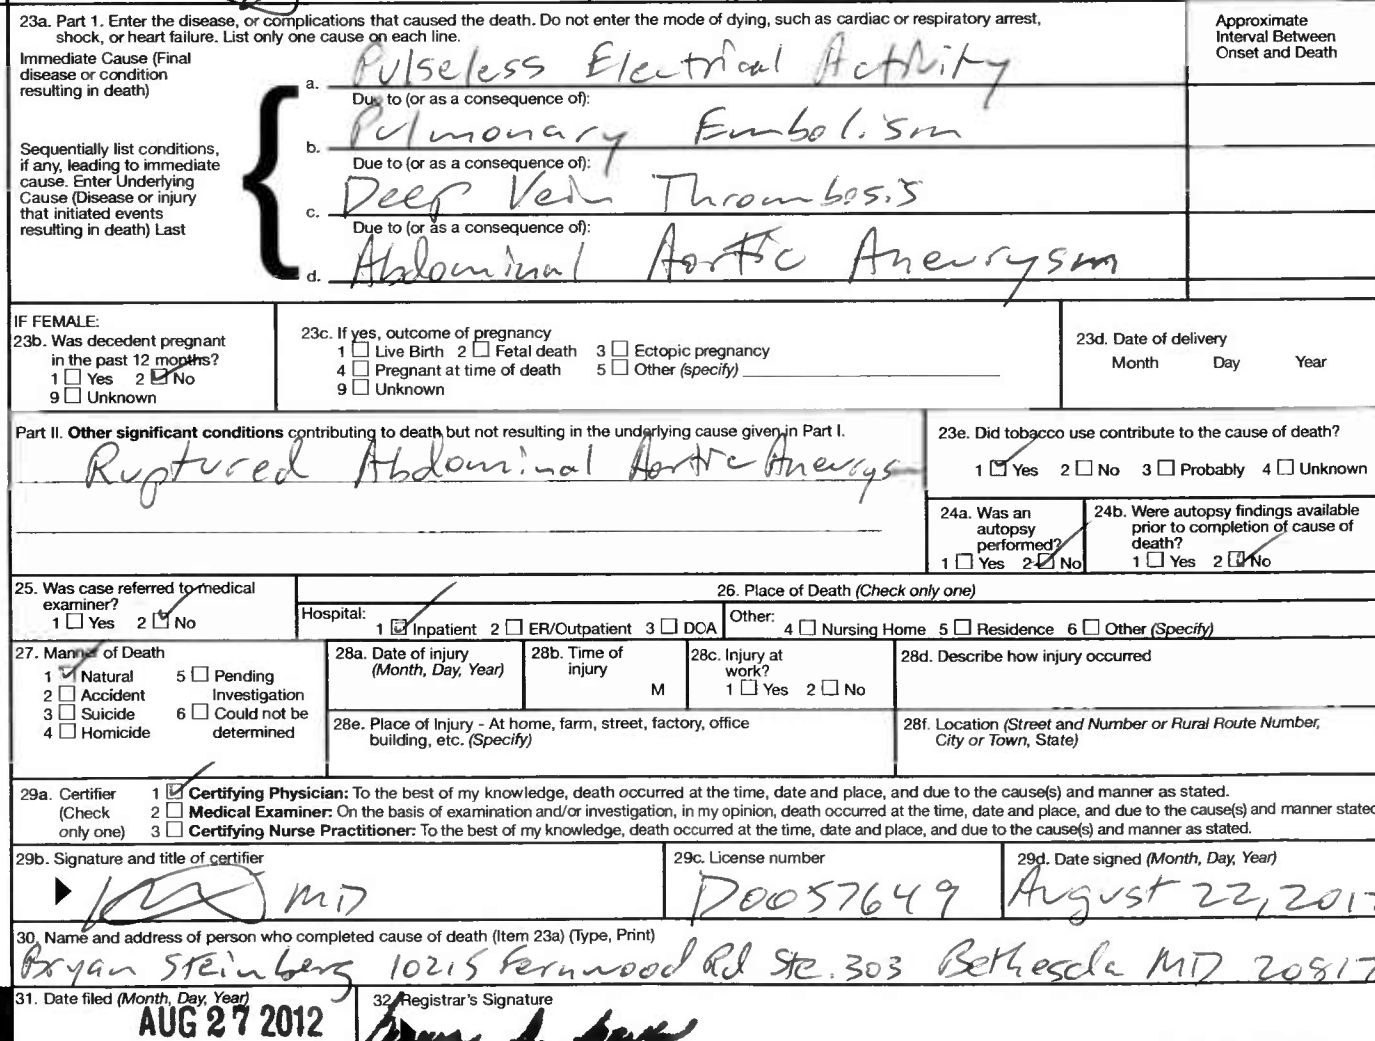 23a. Part 1. Enter the disease, or complications that caused the death. Do not enter the mode of dying, such as cardiac or respiratory arrest,
shock, or heart failure. List only one cause on each line.
Approximate
Interval Between
Onset and Death
Immediate Cause (Final
disease or condition
resulting in death)
a. Pulseless Electrical Activity
Due to (or as a consequence of):
b. Pulmonary Embolism
Sequentially list conditions,
if any, leading to immediate
cause. Enter Underlying
Cause (Disease or injury
that initiated events
resulting in death) Last
Due to (or as a consequence of):
c. Deep Vein Thrombosis
Due to (or as a consequence of):
d. Abdominal Aortic Aneurysm
IF FEMALE:
23b. Was decedent pregnant
in the past 12 months?
1 ☐ Yes 2 ☑ No
9 ☐ Unknown
23c. If yes, outcome of pregnancy
1 ☐ Live Birth 2 ☐ Fetal death 3 ☐ Ectopic pregnancy
4 ☐ Pregnant at time of death 5 ☐ Other (specify)
9 ☐ Unknown
23d. Date of delivery
Month Day Year
Part II. Other significant conditions contributing to death but not resulting in the underlying cause given in Part I.
Ruptured Abdominal Aortic Aneurys
23e. Did tobacco use contribute to the cause of death?
1 ☑ Yes 2 ☐ No 3 ☐ Probably 4 ☐ Unknown
24a. Was an
autopsy
performed?
1 ☐ Yes 2 ☑ No
24b. Were autopsy findings available
prior to completion of cause of
death?
1 ☐ Yes 2 ☑ No
25. Was case referred to medical
examiner?
1 ☐ Yes 2 ☑ No
26. Place of Death (Check only one)
Hospital:
1 ☑ Inpatient 2 ☐ ER/Outpatient 3 ☐ DOA
Other:
4 ☐ Nursing Home 5 ☐ Residence 6 ☐ Other (Specify)
27. Manner of Death
1 ☑ Natural 5 ☐ Pending
2 ☐ Accident Investigation
3 ☐ Suicide 6 ☐ Could not be
4 ☐ Homicide determined
28a. Date of injury
(Month, Day, Year)
28b. Time of
injury
M
28c. Injury at
work?
1 ☐ Yes 2 ☐ No
28d. Describe how injury occurred
28e. Place of Injury - At home, farm, street, factory, office
building, etc. (Specify)
28f. Location (Street and Number or Rural Route Number,
City or Town, State)
29a. Certifier
(Check
only one)
1 ☑ Certifying Physician: To the best of my knowledge, death occurred at the time, date and place, and due to the cause(s) and manner as stated.
2 ☐ Medical Examiner: On the basis of examination and/or investigation, in my opinion, death occurred at the time, date and place, and due to the cause(s) and manner stated
3 ☐ Certifying Nurse Practitioner: To the best of my knowledge, death occurred at the time, date and place, and due to the cause(s) and manner as stated.
29b. Signature and title of certifier
MD
29c. License number
D0057649
29d. Date signed (Month, Day, Year)
August 22, 201
30. Name and address of person who completed cause of death (Item 23a) (Type, Print)
Bryan Steinberg 10215 Fernwood Rd Ste. 303 Bethesda MD 20817
31. Date filed (Month, Day, Year)
AUG 27 2012
32. Registrar's Signature